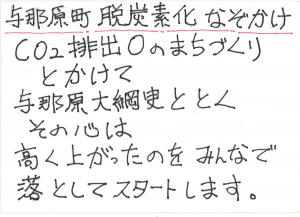 与那原町 脱炭素化 なぞかけ
CO2排出0のまちづくり
とかけて
与那原大綱曳ととく
その心は
高く上がったのを みんなで
落としてスタートします。